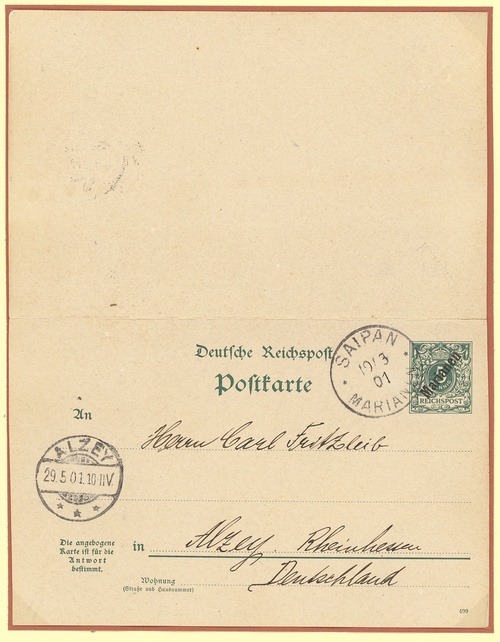 Deutsche Reichspost
Postkarte
SAIPAN
19/3
01
MARIANEN
Marianen
REICHSPOST
An
Herrn Carl Fritzleib
ALZEY
29.5.01.10-11V.
Die angebogene
Karte ist für die
Antwort
bestimmt.
in Alzey. Rheinhessen
Deutschland
Wohnung
(Straße und Hausnummer)
499